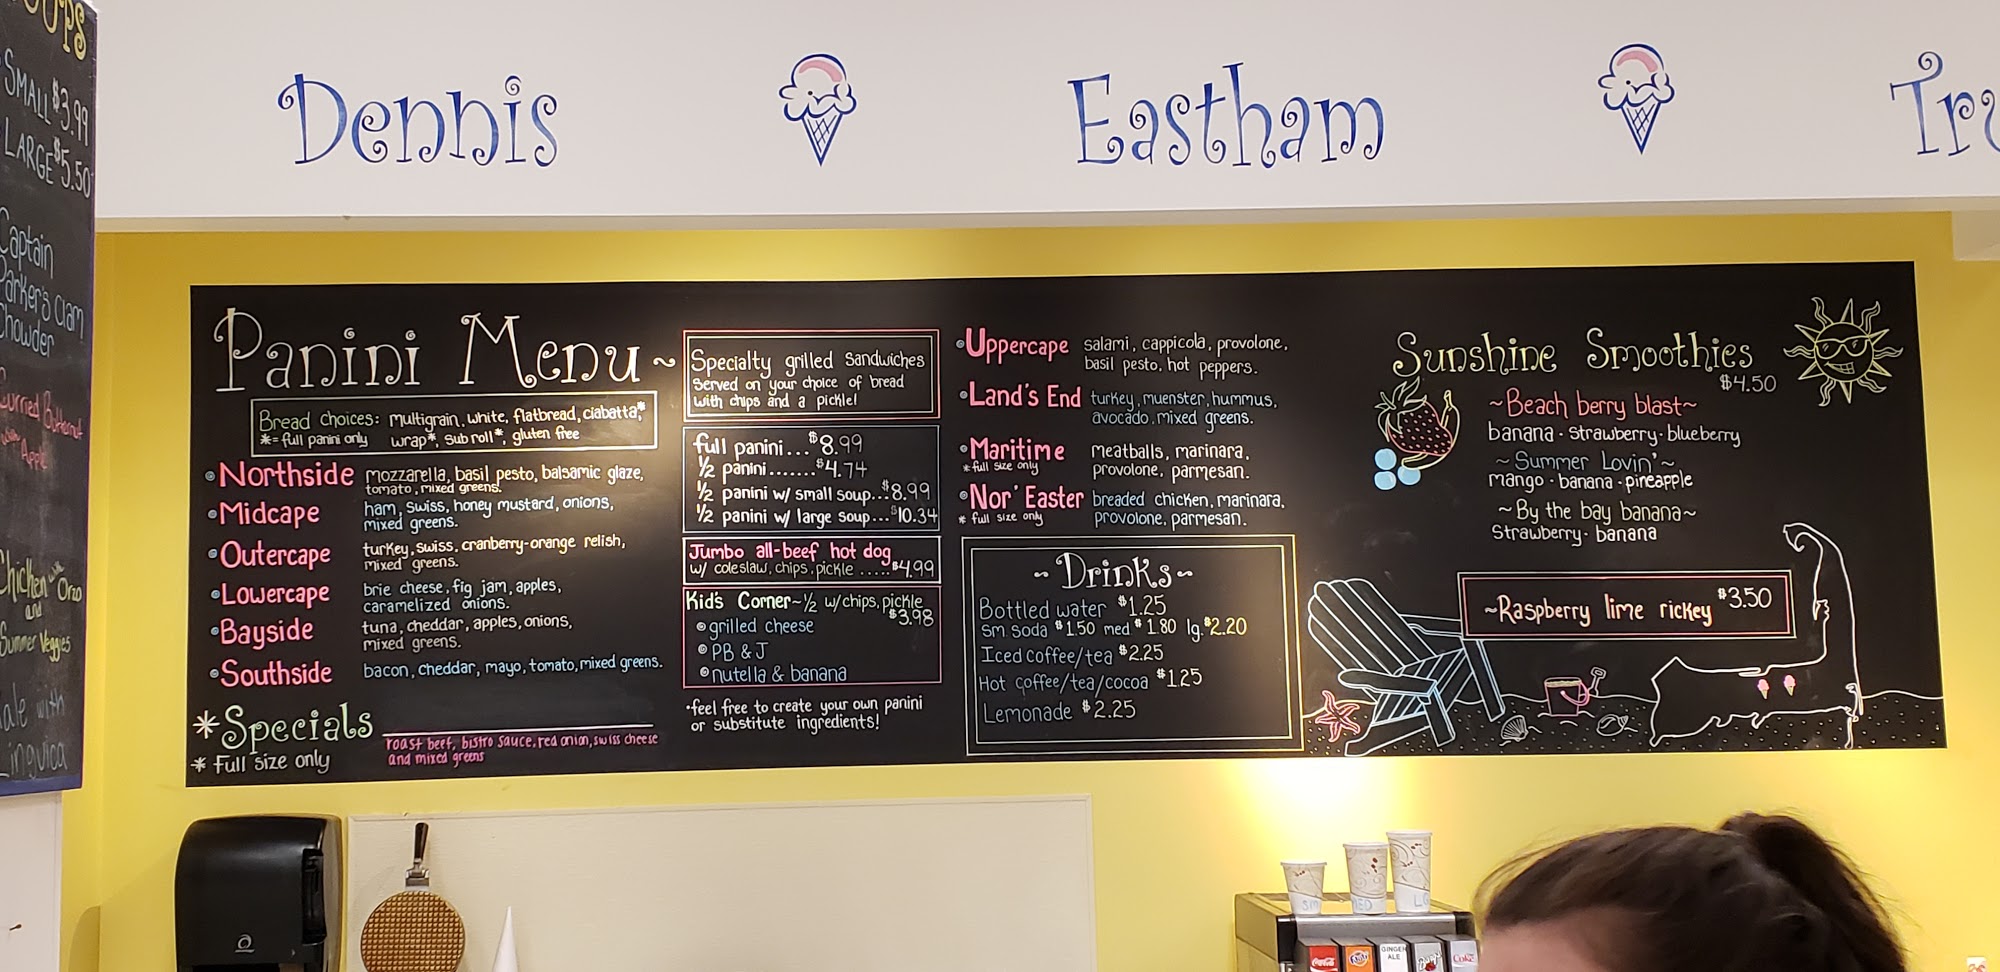 Dennis
Eastham
SMALL $3.99
LARGE $5.50
Captain
Parker's Clam
Chowder
Curried Butternut
Apple
Chicken with Orzo
and
Summer Veggies
with
Linguica
Panini Menu~
Bread Choices: multigrain, white, flatbread, ciabatta,*
*= full panini only wrap*, sub roll*, gluten free
• Northside mozzarella, basil pesto, balsamic glaze,
tomato, mixed greens.
• Midcape ham, swiss, honey mustard, onions,
mixed greens.
• Outercape turkey, swiss, cranberry-orange relish,
mixed greens.
• Lowercape brie cheese, fig jam, apples,
caramelized onions.
• Bayside tuna, cheddar, apples, onions,
mixed greens.
• Southside bacon, cheddar, mayo, tomato, mixed greens.
*Specials
* Full size only
roast beef, bistro sauce, red onion, swiss cheese
and mixed greens
Specialty grilled sandwiches
served on your choice of bread
with chips and a pickle!
full panini... $8.99
1/2 panini....... $4.74
1/2 panini w/ small soup... $8.99
1/2 panini w/ large soup... $10.34
Jumbo all-beef hot dog
w/ coleslaw, chips, pickle ..... $4.99
Kid's Corner~ 1/2 w/chips, pickle
$3.98
• grilled cheese
• PB & J
• nutella & banana
•feel free to create your own panini
or substitute ingredients!
• Uppercape salami, cappicola, provolone,
basil pesto, hot peppers.
• Land's End turkey, muenster, hummus,
avocado, mixed greens.
• Maritime meatballs, marinara,
* full size only provolone, parmesan.
• Nor' Easter breaded chicken, marinara,
* full size only provolone, parmesan.
~Drinks~
Bottled water $1.25
sm soda $1.50 med $1.80 lg. $2.20
Iced coffee/tea $2.25
Hot coffee/tea/cocoa $1.25
Lemonade $2.25
Sunshine Smoothies
$4.50
~Beach berry blast~
banana · strawberry · blueberry
~ Summer Lovin' ~
mango · banana · pineapple
~By the bay banana~
Strawberry · banana
~Raspberry lime rickey $3.50
SM
MED
LG
Coca-Cola
Fanta
GINGER
ALE
Coke